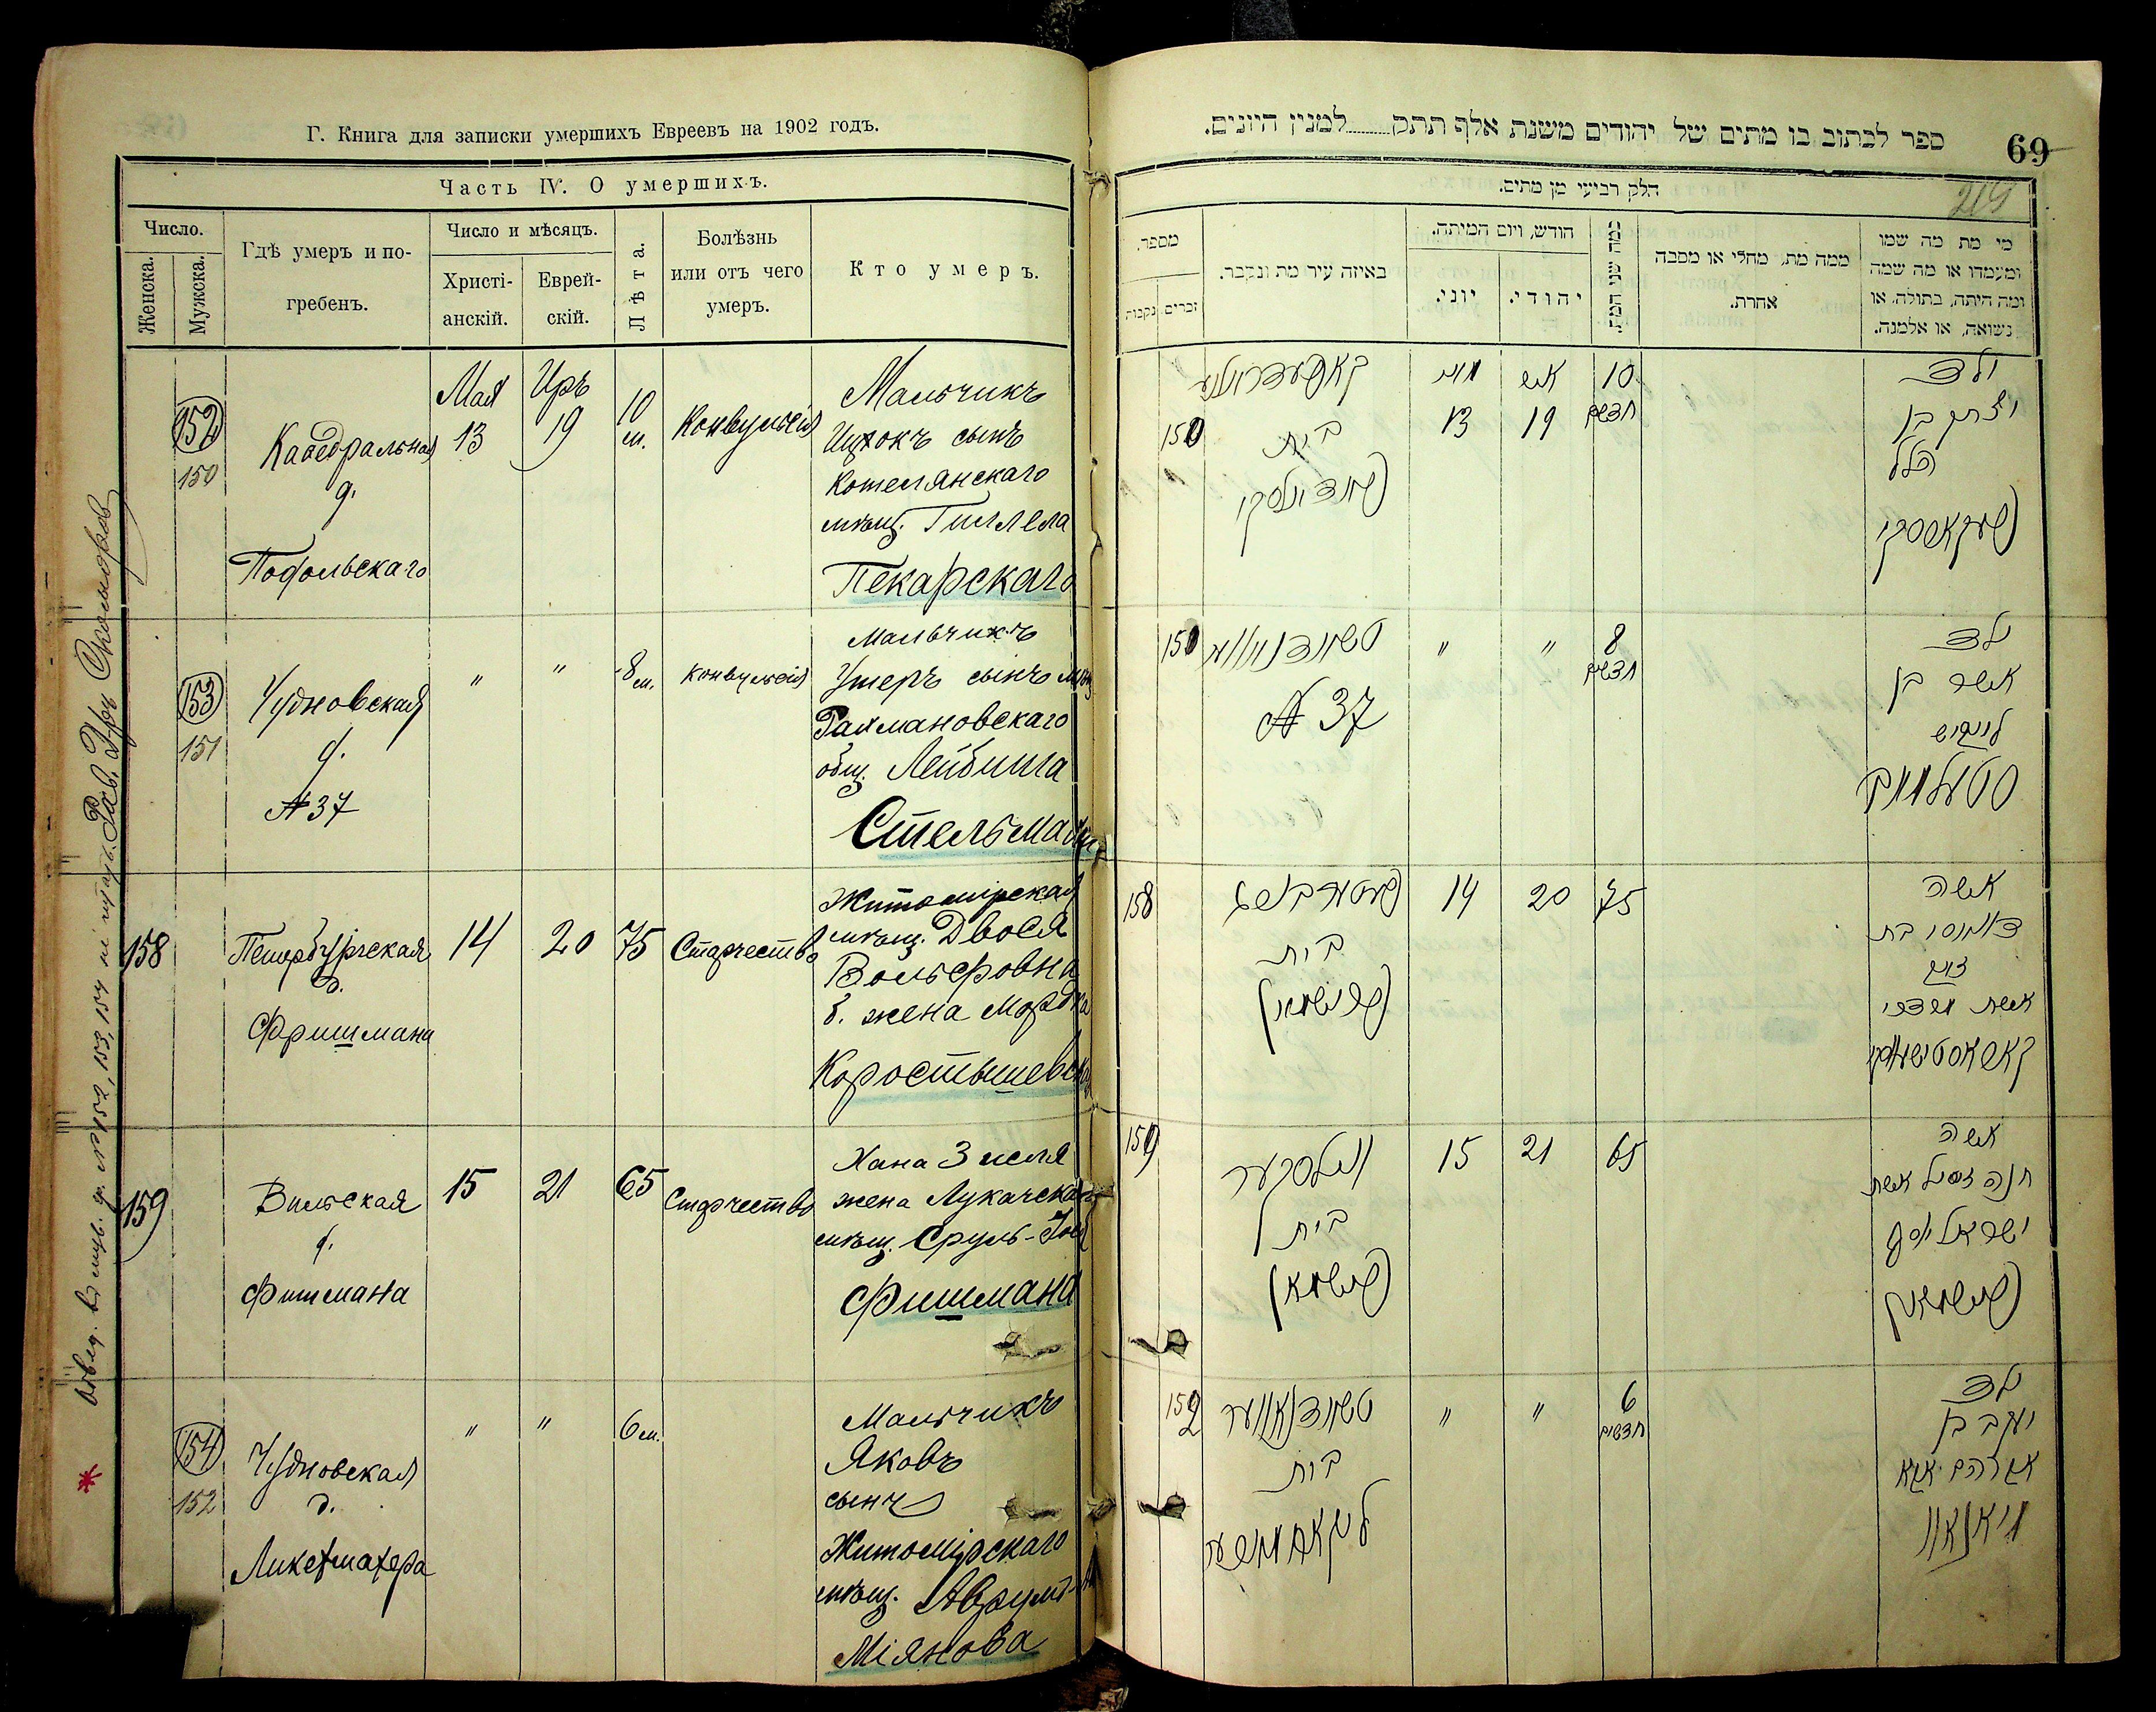 Г. Книга для записки умершихъ Евреевъ на 1902 годъ.
Часть IV. О умершихъ.
Число.
Женска.
Мужска.
Гдѣ умеръ и по-
гребенъ.
Число и мѣсяцъ.
Христі-
анскій.
Еврей-
скій.
Лѣта.
Болѣзнь
или отъ чего
умеръ.
Кто умеръ.
152
150
Каѳедральная
д.
Подольскаго
Мая
13
Иръ
19
10
м.
Конвульсія
Мальчикъ
Ицхокъ сынъ
Котелянскаго
мѣщ. Гиллела
Пекарскаго
153
151
Чудновская
д.
№ 37
"
"
8 м.
Конвульсія
Мальчикъ
Ушеръ сынъ мѣщ
Рахмановскаго
общ. Лейбиша
Стельмах
158
Петербургская
д.
Фришмана
14
20
75
Старчество
Житомірская
мѣщ. Двося
Вольфовна
б. жена Мордка
Коростышевск
159
Вильская
д.
Фишмана
15
21
65
Старчество
Хана Зисля
жена Лукачска
мѣщ. Сруль-Іос
Фишмана
154
152
Чудновская
д.
Ликетмахера
"
"
6 м.
Мальчикъ
Яковъ
сынъ
Житомірскаго
мѣщ. Аврумъ-
Міянова
№ 152, 153, 154
69
219
ספר לכתוב בו מתים של יהודים משנת אלף תתק למנין היונים.
חלק רביעי מן מתים.
מספר.
נקבות
זכרים
באיזה עיר מת ונקבר.
חודש, ויום המיתה.
יוני.
יהודי.
כמה שני המת
ממה מת, מחלי או מסבה
אחרת.
מי מת מה שמו
ומעמדו או מה שמה
ומה היתה, בתולה, או
נשואה, או אלמנה.
150
בית
13
19
10
חדשים
ילד
יצחק בן
הלל
פעקארסקי
151
№ 37
"
"
8
חדשים
ילד
אשר בן
לייביש
סטעלמאך
158
בית
פרישמאן
14
20
75
אשה
דוואסי בת
וואלף
אשת מרדכי
קאראסטישעווסקי
159
ווילסקער
בית
פישמאן
15
21
65
אשה
חנה זיסיל אשת
ישראל יוסף
פישמאן
152
טשודנאווער
בית
"
"
6
חדשים
ילד
יעקב בן
אברהם אבא
מיאנאוו